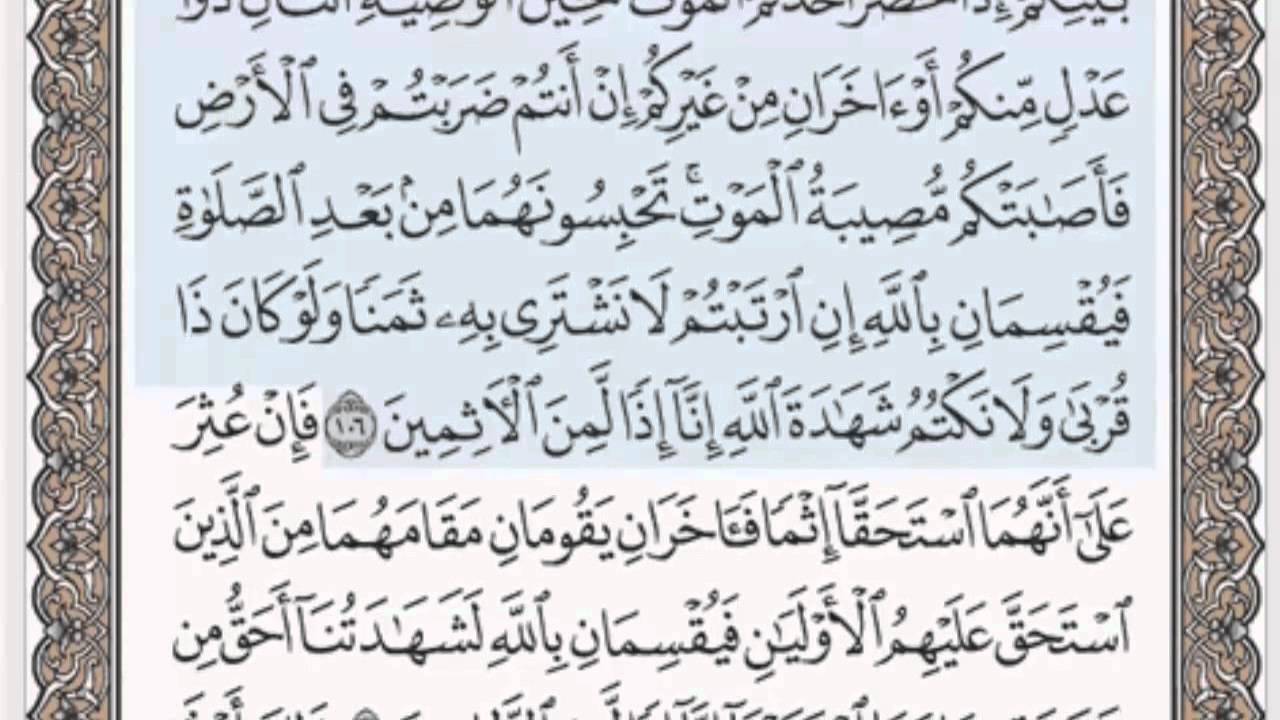 بَيۡنِكُمۡ إِذَا حَضَرَ أَحَدَكُمُ ٱلۡمَوۡتُ حِينَ ٱلۡوَصِيَّةِ ٱثۡنَانِ ذَوَا
عَدۡلٖ مِّنكُمۡ أَوۡ ءَاخَرَانِ مِنۡ غَيۡرِكُمۡ إِنۡ أَنتُمۡ ضَرَبۡتُمۡ فِي ٱلۡأَرۡضِ
فَأَصَٰبَتۡكُم مُّصِيبَةُ ٱلۡمَوۡتِۚ تَحۡبِسُونَهُمَا مِنۢ بَعۡدِ ٱلصَّلَوٰةِ
فَيُقۡسِمَانِ بِٱللَّهِ إِنِ ٱرۡتَبۡتُمۡ لَا نَشۡتَرِي بِهِۦ ثَمَنٗا وَلَوۡ كَانَ ذَا
قُرۡبَىٰ وَلَا نَكۡتُمُ شَهَٰدَةَ ٱللَّهِ إِنَّآ إِذٗا لَّمِنَ ٱلۡأٓثِمِينَ ١٠٦ فَإِنۡ عُثِرَ
عَلَىٰٓ أَنَّهُمَا ٱسۡتَحَقَّآ إِثۡمٗا فَـَٔاخَرَانِ يَقُومَانِ مَقَامَهُمَا مِنَ ٱلَّذِينَ
ٱسۡتَحَقَّ عَلَيۡهِمُ ٱلۡأَوۡلَيَٰنِ فَيُقۡسِمَانِ بِٱللَّهِ لَشَهَٰدَتُنَآ أَحَقُّ مِن